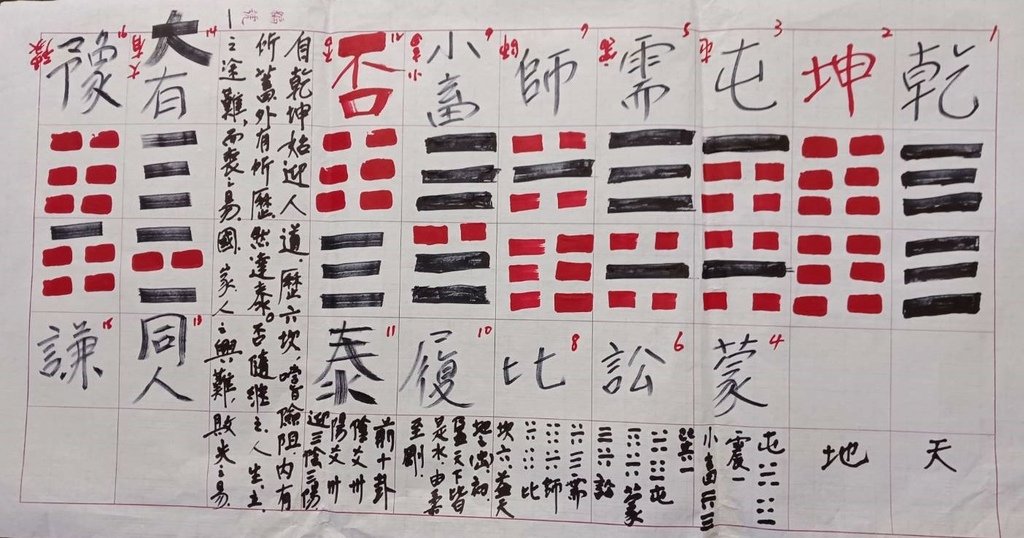 乾 1
坤 2
屯 3
屯
需 5
需
師 7
師
小畜 9
小畜
否 12
否
自乾坤始迎人道歷六坎,嚐險阻,內有
所蓄外有所歷然達泰。否隨繼之,人生立
之途難,而喪之易,國家人之興難,敗失之易,
大有 14
大有
豫 16
豫
蒙 4
訟 6
比 8
履 10
泰 11
同人 13
謙 15
天
地
屯
震一
小畜
巽一
屯
蒙
訟
需
師
比
坎六蓋天
地之出初
蓋天下皆
是水,由柔
至剛
前十卦
陰爻卅
陽爻卅
迎三陰三陽